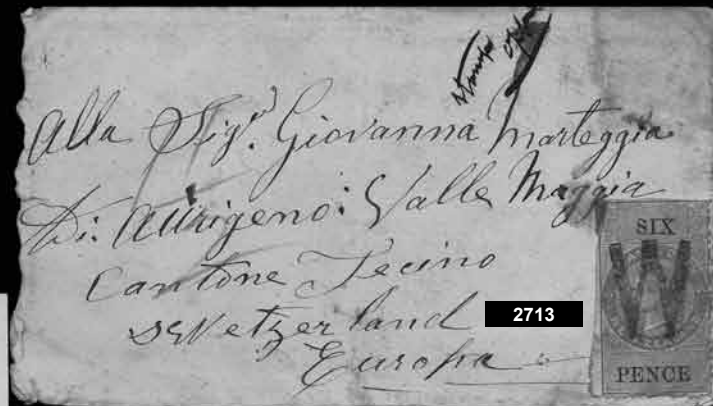 stamp off
Alla Sig.ª Giovanna Marteggia
Di: Aurigeno: Valle Maggia
Cantone Tecino
SWetzerland
Europa
2713
SIX
W
PENCE